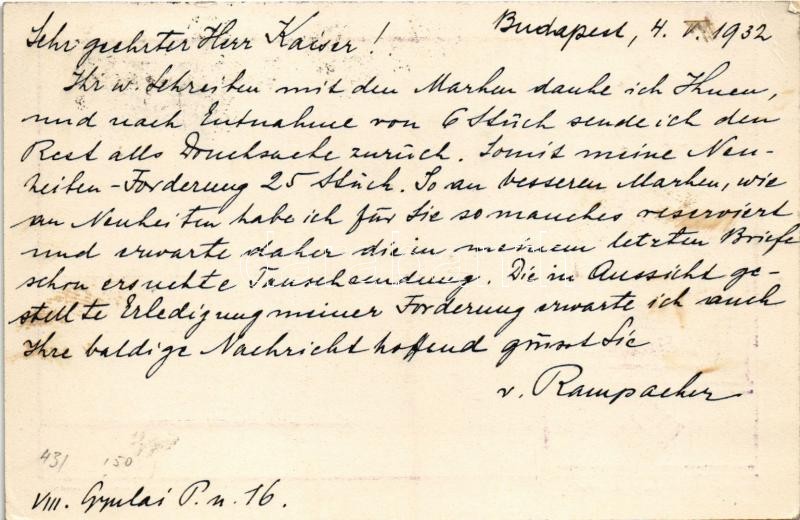 Budapest, 4. V. 1932
Sehr geehrter Herr Kaiser!
Ihr w. Schreiben mit den Marken danke ich Ihnen,
und nach Entnahme von 6 Stück sende ich den
Rest als Drucksache zurück. Somit meine Neu-
heiten-Forderung 25 Stück. So an besseren Marken, wie
an Neuheiten habe ich für Sie so manches reserviert
und erwarte daher die in meinem letzten Briefe
schon ersuchte Tauschsendung. Die in Aussicht ge-
stellte Erledigung meiner Forderung erwarte ich auch
Ihre baldige Nachricht hoffend grüsst Sie
v. Rampacher
431 150
VIII. Gyulai P. u. 16.